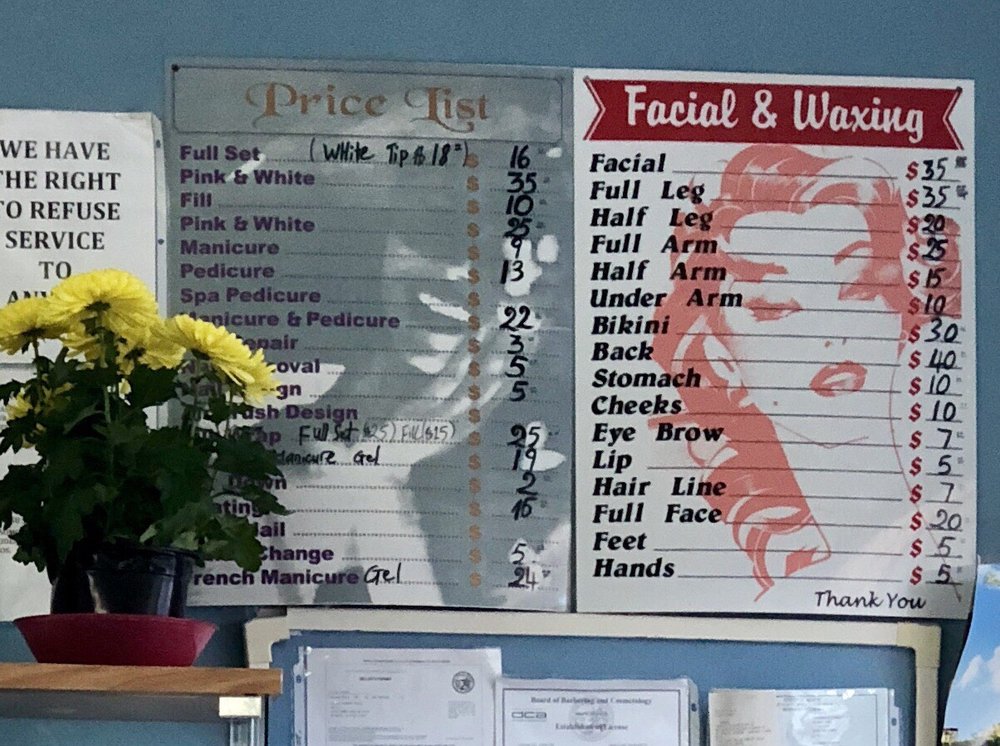 WE HAVE
THE RIGHT
TO REFUSE
SERVICE
TO
Price List
Full Set (White Tip $ 18) $ 16
Pink & White $ 35
Fill $ 10
Pink & White $ 25
Manicure $ 9
Pedicure $ 13
Spa Pedicure $
Manicure & Pedicure $ 22
epair $ 3
oval $ 5
gn $ 5
ush Design $
ap Full Set ($25) Fill($15) $ 25
Manicure Gel $ 19
own $ 2
ating $ 15
ail $
Change $ 5
French Manicure Gel $ 24
Facial & Waxing
Facial $ 35
Full Leg $ 35
Half Leg $ 20
Full Arm $ 25
Half Arm $ 15
Under Arm $ 10
Bikini $ 30
Back $ 40
Stomach $ 10
Cheeks $ 10
Eye Brow $ 7
Lip $ 5
Hair Line $ 7
Full Face $ 20
Feet $ 5
Hands $ 5
Thank You
Board of Barbering and Cosmetology
dca
Establishment License